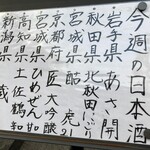 今週の日本酒
岩手県 あさ開
秋田県 北秋田にごり
宮城県
京都府 匠 大吟醸
宮城県 ひめぜん
高知県 土佐鶴
新潟県 蔵